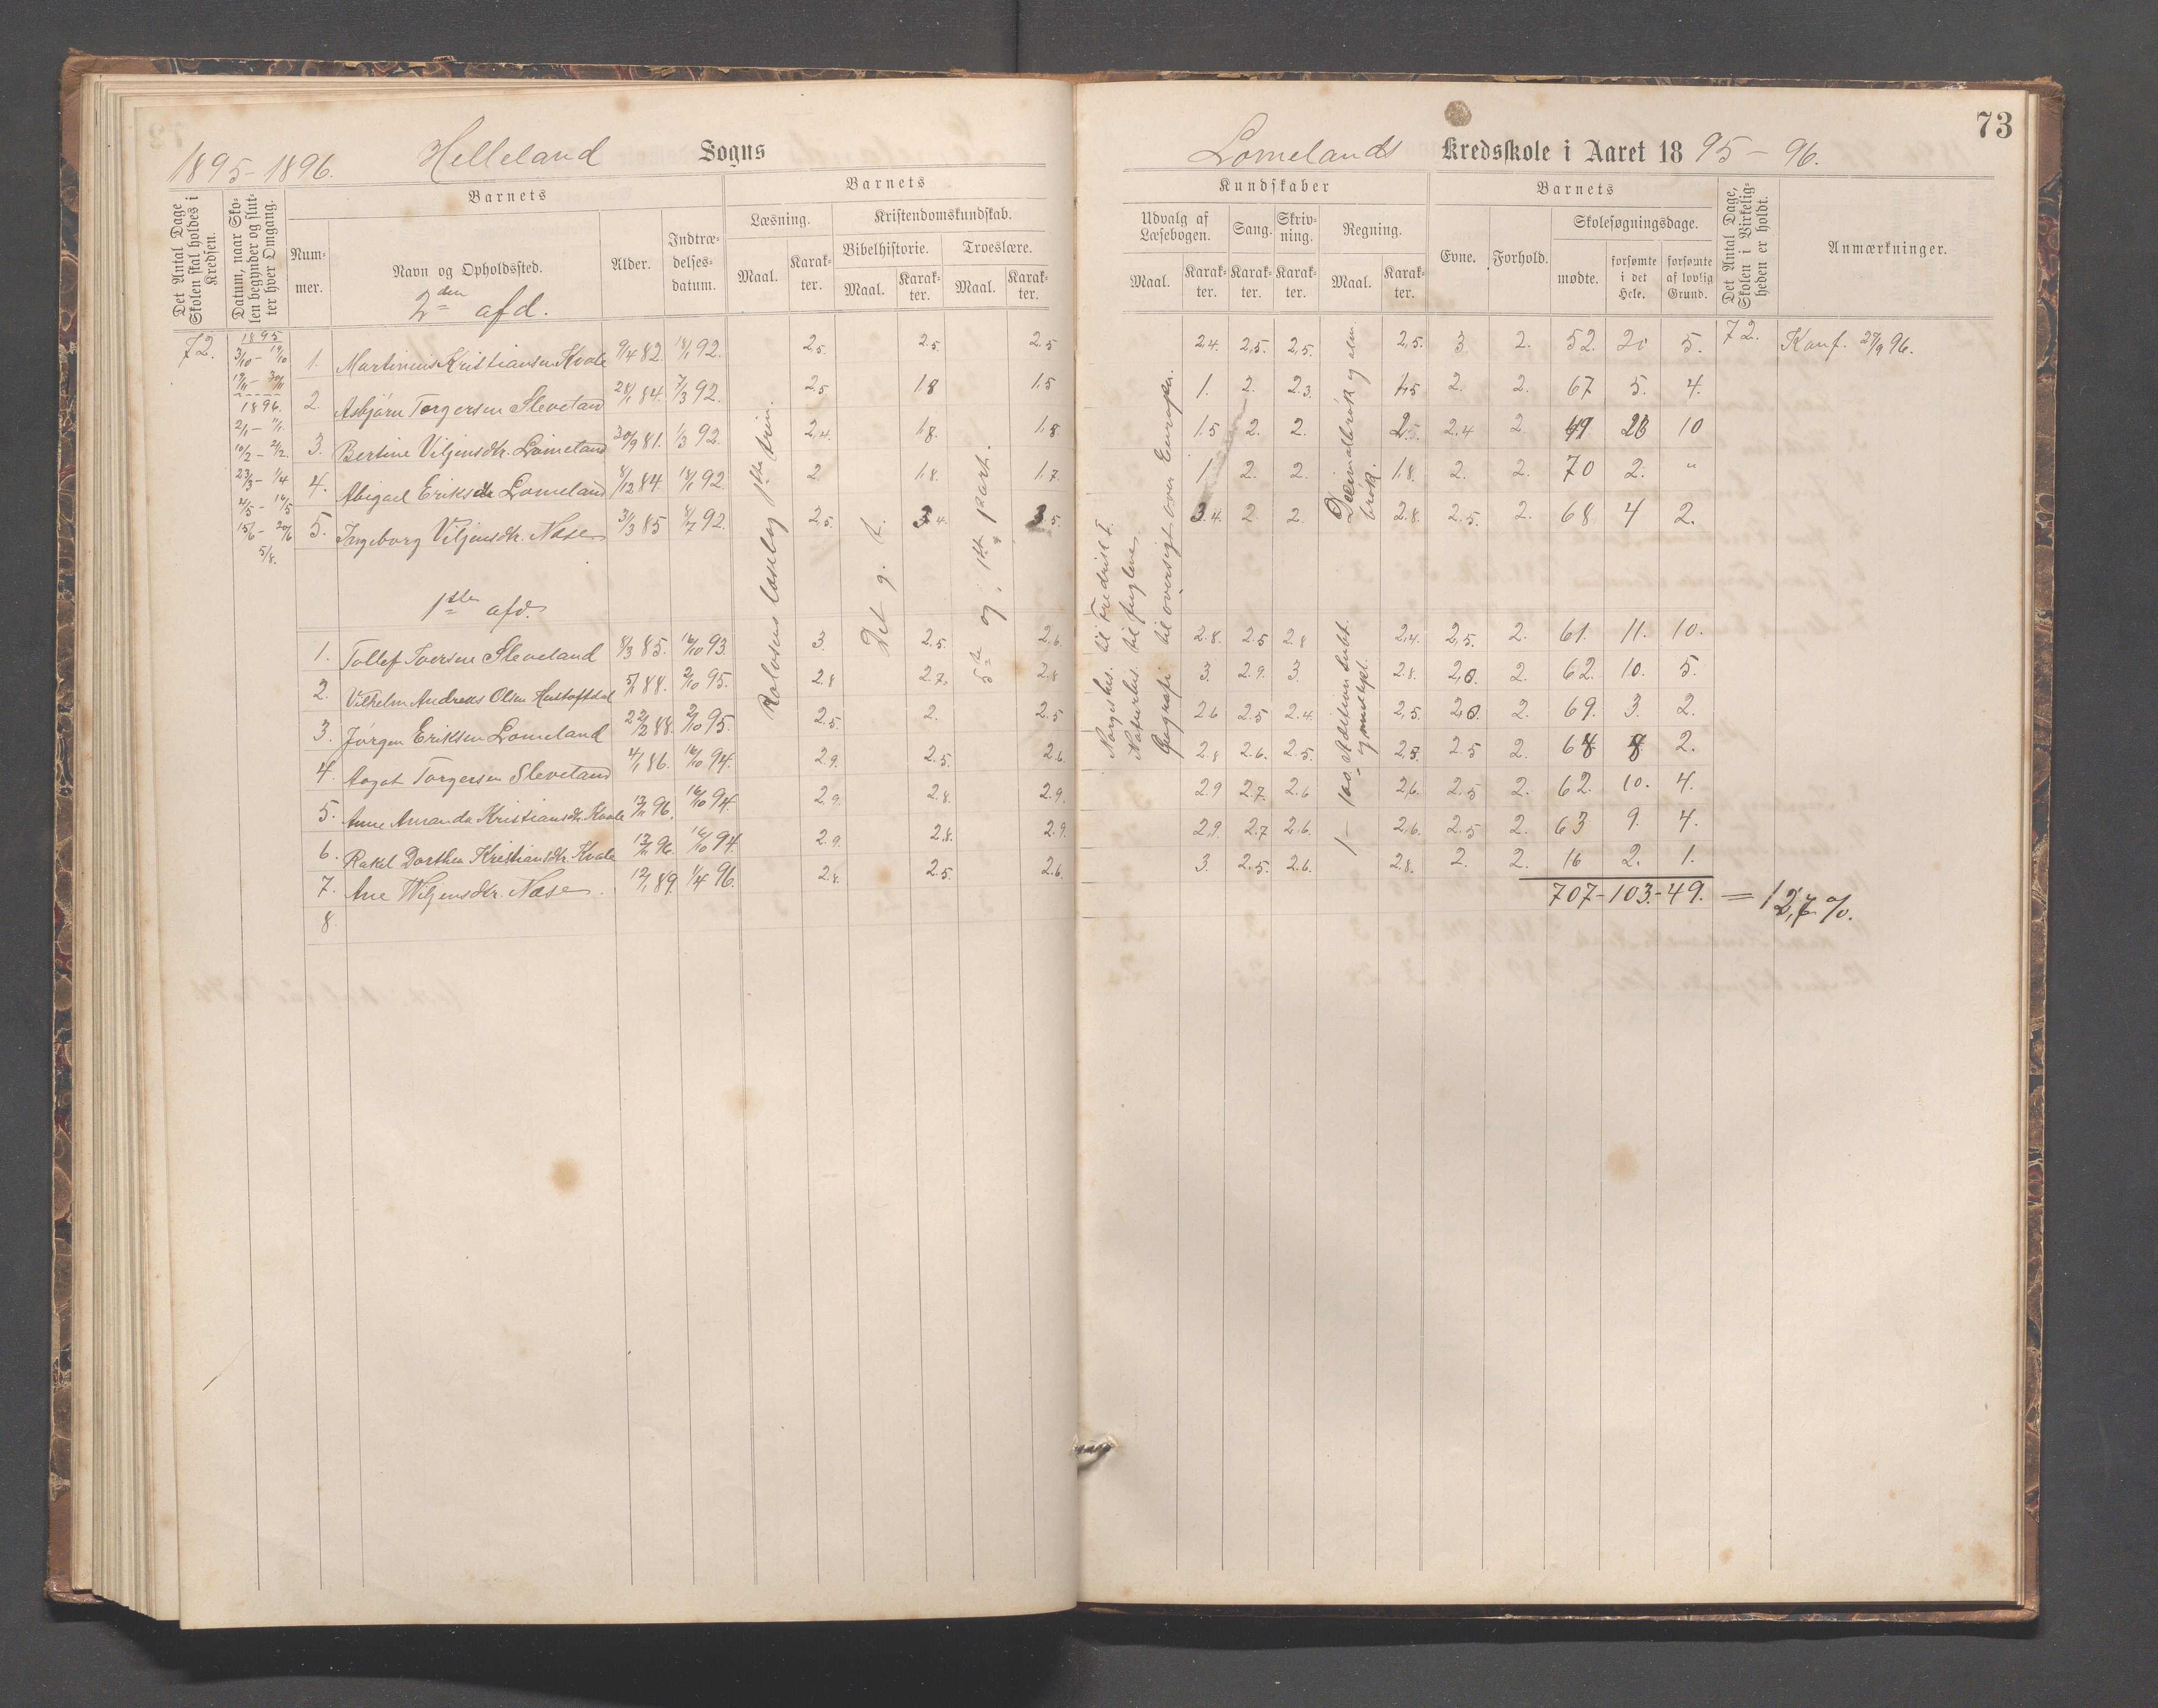 1895-1896. Helleland Sogns
Det Antal Dage Skolen skal holdes i Kredsen.
Datum, naar Skolen begynder og slutter hver Omgang.
Barnets
Nummer.
Navn og Opholdssted.
Alder.
Indtrædelsesdatum.
Barnets
Læsning.
Maal.
Karakter.
Kristendomskundskab.
Bibelhistorie.
Maal.
Karakter.
Troeslære.
Maal.
Karakter.
2den afd.
72.
1895
3/10 - 19/10
19/11 - 30/11
1896.
2/1 - 11/1.
10/2 - 21/2.
23/3 - 1/4
4/5 - 16/5
15/6 - 20/6
5/8.
1. Martinius Kristiansen Kvale 9/4 82. 18/1 92. 2.5. 2.5. 2.5
2. Asbjørn Torgersen Sleveland 28/1 84. 7/3 92. 2.5 1.8 1.5
3. Bertine Viljensdtr. Lomeland 30/9 81. 1/3 92. 2.4. 1.8. 1.8.
4. Abigael Eriksdtr Lomeland 8/12 84. 18/1 92. 2. 1.8. 1.7.
5. Ingeborg Viljensdtr. Nase 31/3 85 4/7 92. 2.5. 3.4. 3.5.
1ste afd.
1. Tollef Iversen Sleveland 8/3 85. 16/10 93. 3. 2.5. 2.6.
2. Vilhelm Andreas Olsen 5/1 88. 2/10 95. 2.8 2.7. 2.8
3. Jørgen Eriksen Lomeland 22/2 88. 2/10 95. 2.5. 2. 2.5
4. Aagot Torgersen Sleveland 4/1 86. 16/10 94. 2.9. 2.5. 2.6.
5. Anne Amanda Kristiansdtr. Kvale 12/11 96. 16/10 94. 2.9. 2.8. 2.9.
6. Rakel Dorthea Kristiansdtr. Kvale 12/11 96. 16/10 94. 2.9. 2.8. 2.9.
7. Ane Wiljensdtr. Nase. 12/1 89. 1/4 96. 2.8. 2.5. 2.6.
8.
Rolvsens læsebog 1ste trin.
Det g. t.
5te og 1ste part.
73
Lomelands Kredsskole i Aaret 1895-96.
Kundskaber
Udvalg af Læsebogen.
Maal.
Karakter.
Sang.
Karakter.
Skrivning.
Karakter.
Regning.
Maal.
Karakter.
Barnets
Evne.
Forhold.
Skolesøgningsdage.
mødte.
forsømte i det Hele.
forsømte af lovlig Grund.
Det Antal Dage, Skolen i Virkeligheden er holdt.
Anmærkninger.
2.4. 2.5. 2.5. 2.5. 3. 2. 52. 20 5. 72. Konf. 27/9 96.
1. 2. 2.3. 1.5 2. 2. 67 5. 4.
1.5 2. 2. 2.5. 2.4 2. 49 23 10
1. 2. 2. 1.8. 2. 2. 70 2. "
3.4. 2. 2. 2.8. 2.5. 2. 68 4 2.
2.8. 2.5 2.8 2.4. 2.5. 2. 61. 11. 10.
3. 2.9. 3. 2.8. 2.0. 2. 62. 10. 5.
2.6 2.5 2.4. 2.5. 2.0. 2. 69. 3. 2.
2.8 2.6. 2.5. 2.5. 2.5 2. 64 8 2.
2.9 2.7. 2.6 2.6. 2.5 2. 62. 10. 4.
2.9. 2.7 2.6. 2.6. 2.5 2. 63 9. 4.
3. 2.5. 2.6. 2.8. 2. 2. 16 2. 1.
707-103.-49. = 12,7 %.
Norgeshis. til Fredrik I.
Naturhis. til fuglene.
Geografi til oversigt over Europa.
Decimalbrøk og alm. brøk.
1-100. Addition subt. og multipl.